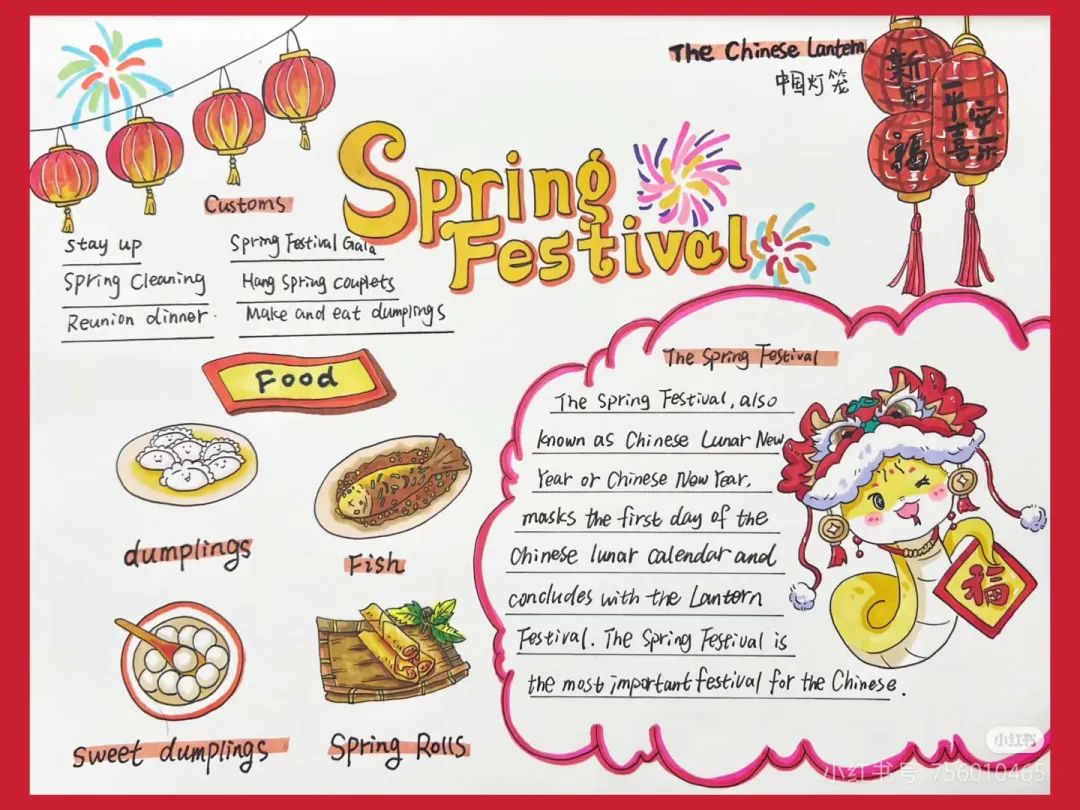 The Chinese Lantern
中国灯笼
新
福
平安
喜乐
Spring
Festival
Customs
stay up
Spring Festival Gala
Spring Cleaning
Hang Spring couplets
Reunion dinner.
Make and eat dumplings
Food
dumplings
Fish
sweet dumplings
Spring Rolls
The Spring Festival
The Spring Festival, also
known as Chinese Lunar New
Year or Chinese New Year,
masks the first day of the
Chinese lunar calendar and
concludes with the Lantern
Festival. The Spring Festival is
the most important festival for the Chinese.
福
小红书
小红书号: 756010465